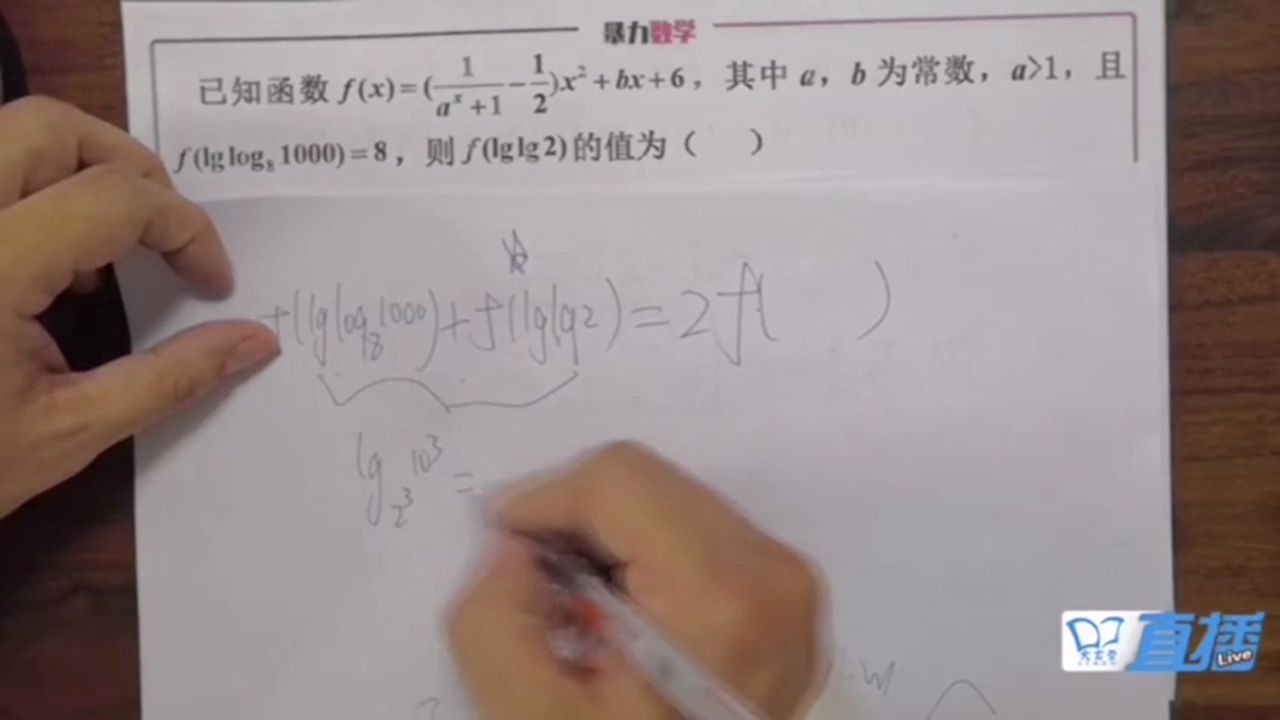 暴力数学
已知函数 f(x)=(1/(a^x+1)-1/2)x²+bx+6，其中 a，b 为常数，a>1，且
f(lg log₈ 1000)=8，则 f(lg lg 2) 的值为（ ）
f(lg log₈ 1000)+f(lg lg 2)=2f( )
lg 2³ 10³ =
直播
Live